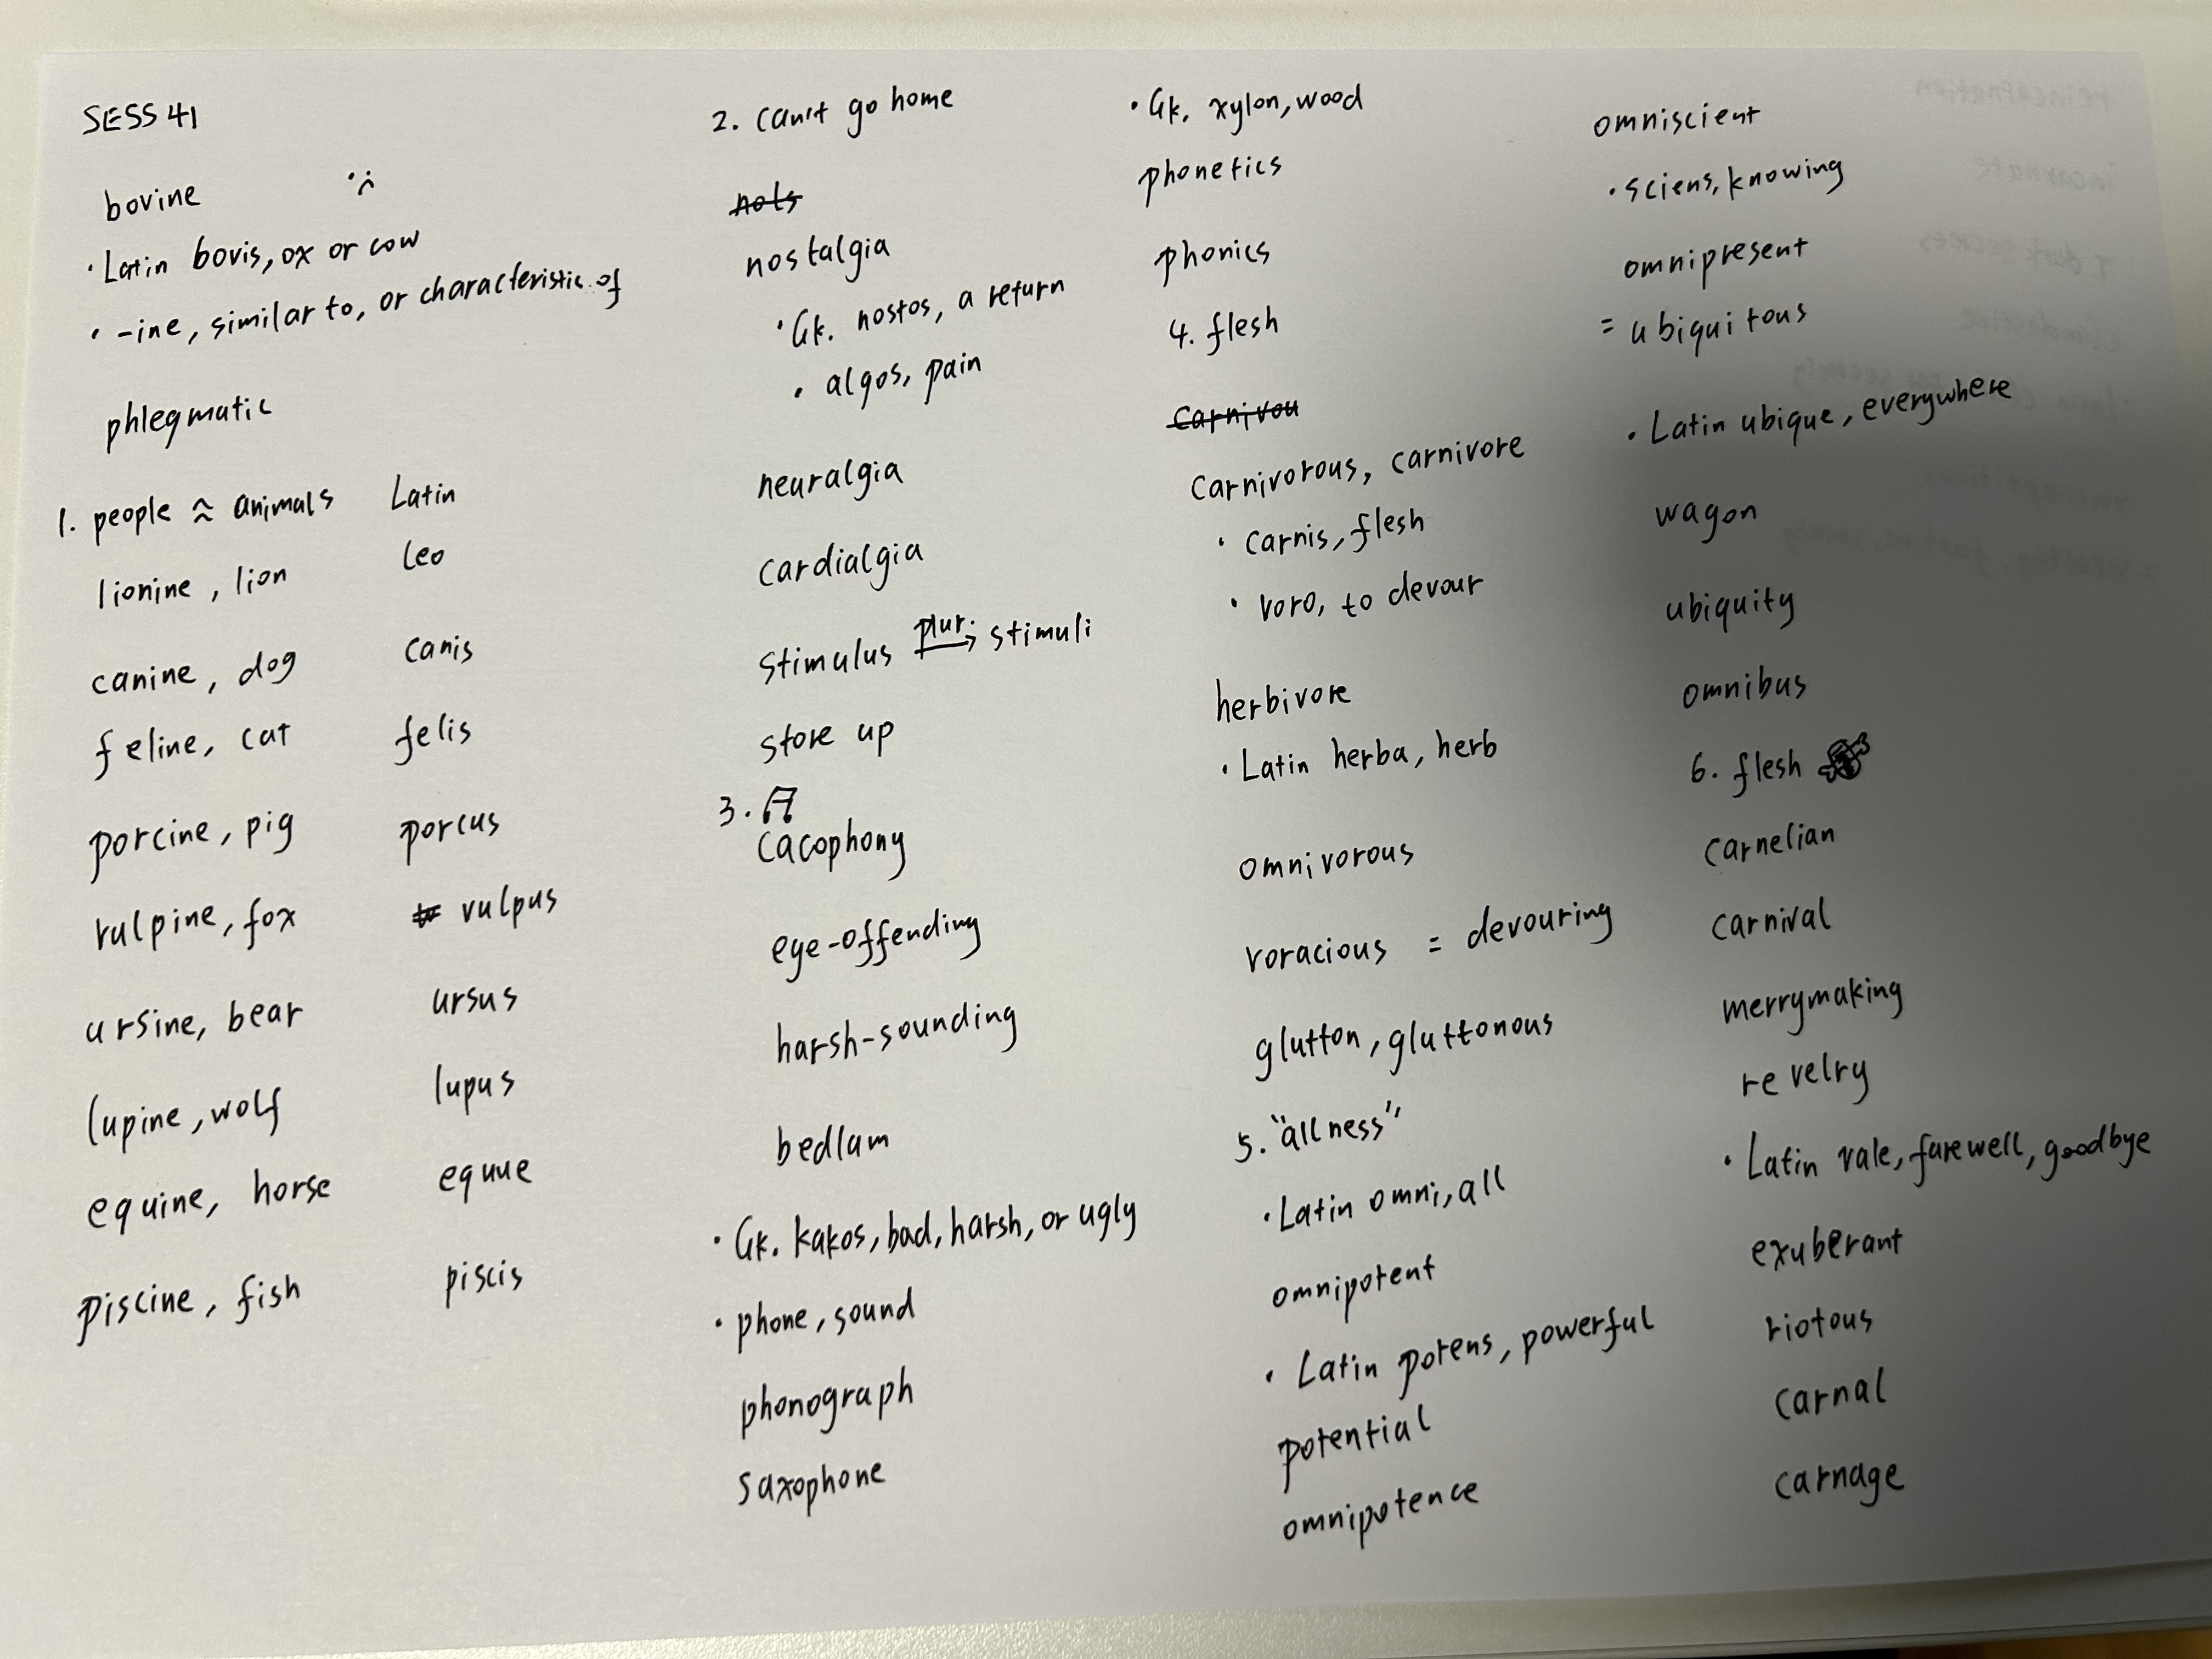 SESS 41
bovine
• Latin bovis, ox or cow
• -ine, similar to, or characteristic of
phlegmatic
1. people ≈ animals Latin
lionine, lion leo
canine, dog canis
feline, cat felis
porcine, pig porcus
vulpine, fox vulpus
ursine, bear ursus
lupine, wolf lupus
equine, horse equue
piscine, fish piscis
2. can't go home
nols
nostalgia
• Gk. nostos, a return
• algos, pain
neuralgia
cardialgia
stimulus plur. → stimuli
store up
3.
cacophony
eye-offending
harsh-sounding
bedlam
• Gk. kakos, bad, harsh, or ugly
• phone, sound
phonograph
saxophone
• Gk. xylon, wood
phonetics
phonics
4. flesh
carnivou
carnivorous, carnivore
• carnis, flesh
• voro, to devour
herbivore
• Latin herba, herb
omnivorous
voracious = devouring
glutton, gluttonous
5. "allness"
• Latin omni, all
omnipotent
• Latin potens, powerful
potential
omnipotence
omniscient
• sciens, knowing
omnipresent
= ubiquitous
• Latin ubique, everywhere
wagon
ubiquity
omnibus
6. flesh
carnelian
carnival
merrymaking
revelry
• Latin vale, farewell, goodbye
exuberant
riotous
carnal
carnage